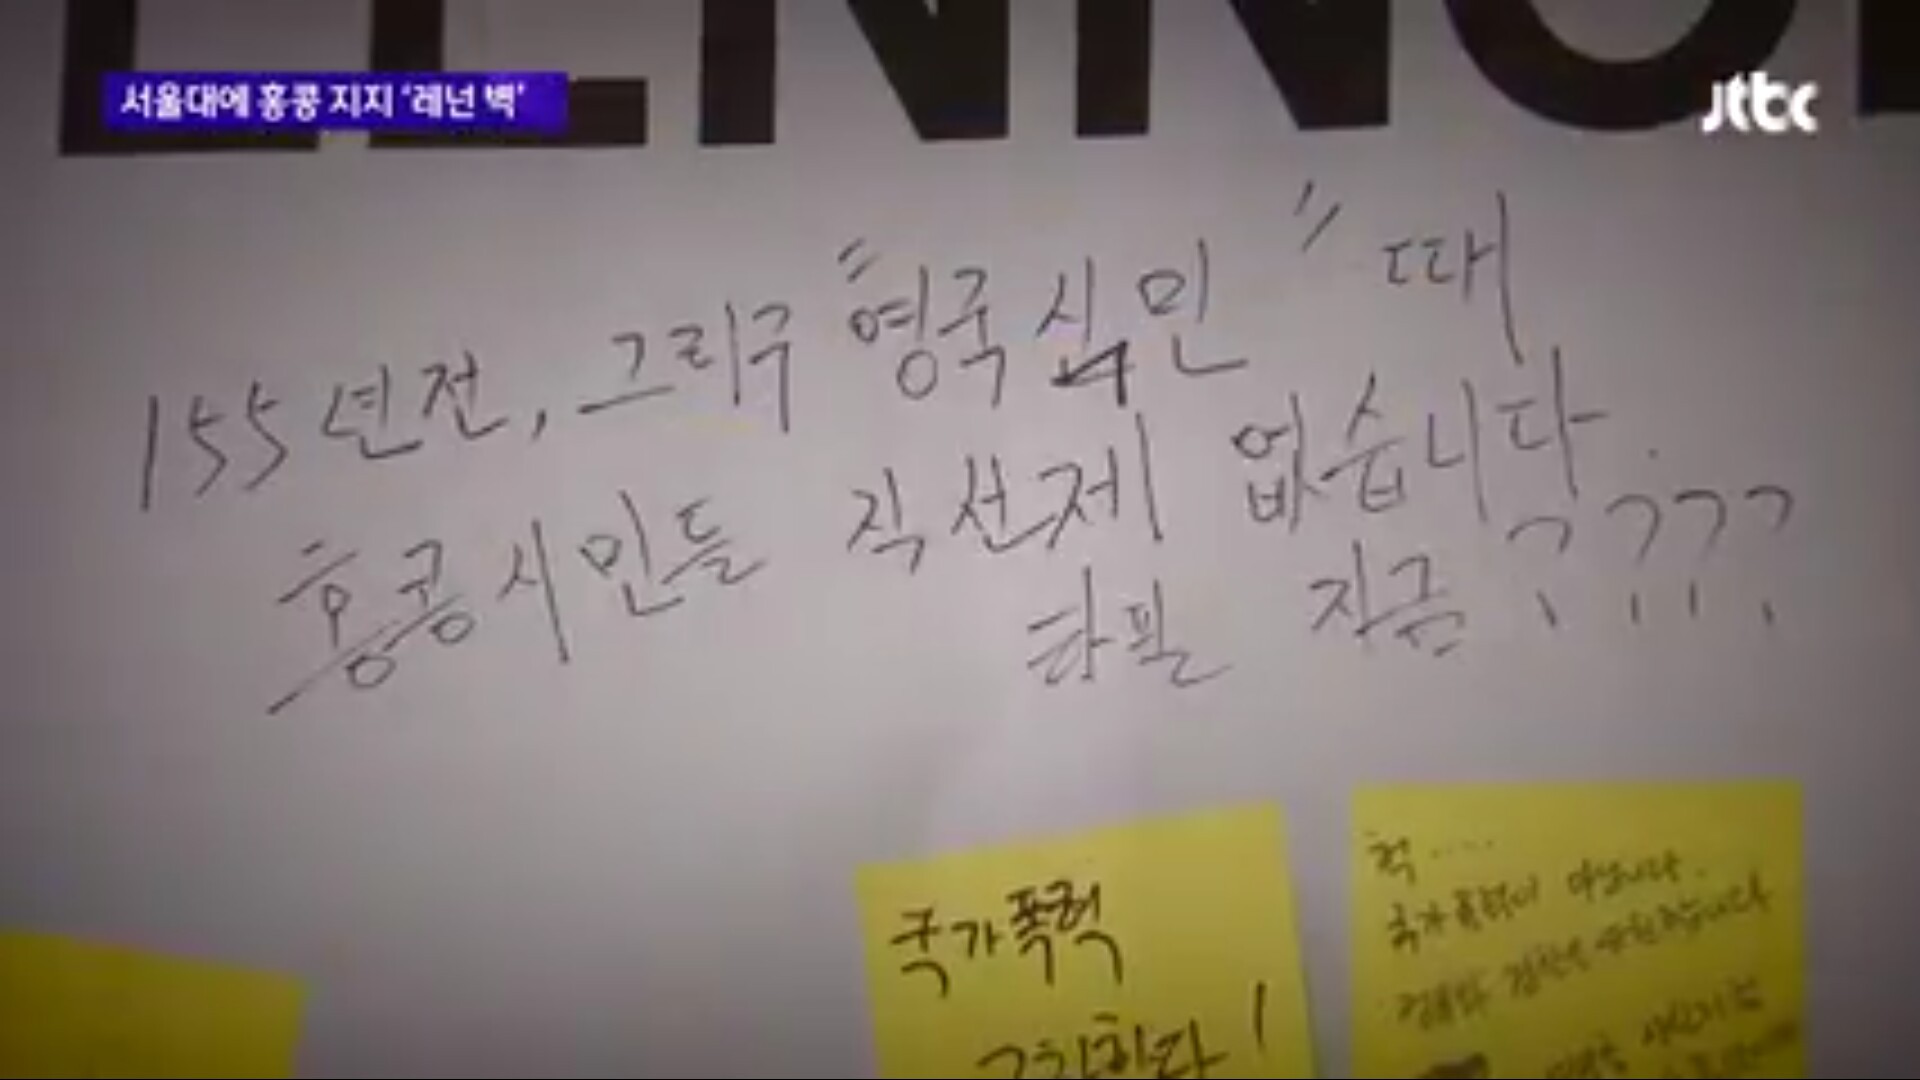 LENNO
서울대에 홍콩 지지 ‘레넌 벽’
jtbc
155년전, 그리구 "영국식민" 때
홍콩시민들 직선제 없습니다.
타필 지금 ????
국가폭력
규탄한다!
헉.....
국가폭력이 아닙니다.